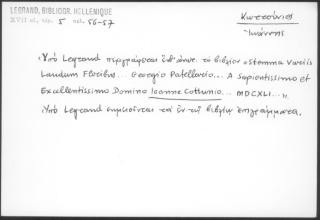 LEGRAND, BIBLIOGR. HELLENIQUE
XVII αἰ. τόμ. 5 σελ. 56-57
Κωττούνιος
Ἰωάννης
«Ὑπὸ Legrand περιγράφεται ὑπ' ἀριθ. τὸ βιβλίον «Stemma Variis
Laudum Floribus... Georgio Patellario... A Sapientissimo et
Excellentissimo Domino Ioanne Cottunio... MDCXLI...».
Ὑπὸ Legrand σημειοῦνται τὰ ἐν τῷ βιβλίῳ ἐπιγράμματα.